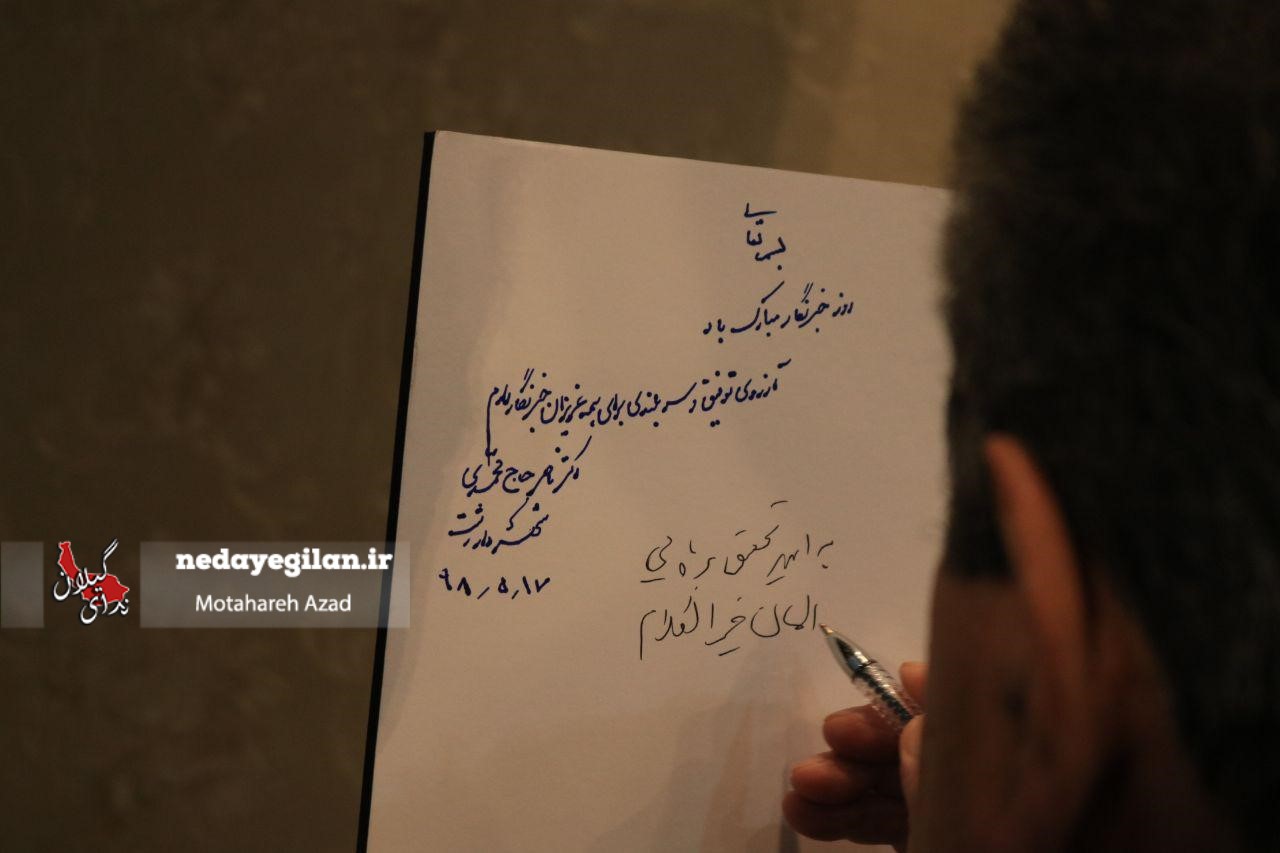 بسمه تعالی
روز خبرنگار مبارک باد
آرزوی توفیق و سربلندی برای همه عزیزان خبرنگار دارم
دکتر ناصر حاج محمدی
شهردار رشت
۹۸/۵/۱۷
به امید تحقق
خیر الکلام
nedayegilan.ir
Motahareh Azad
ندای گیلان